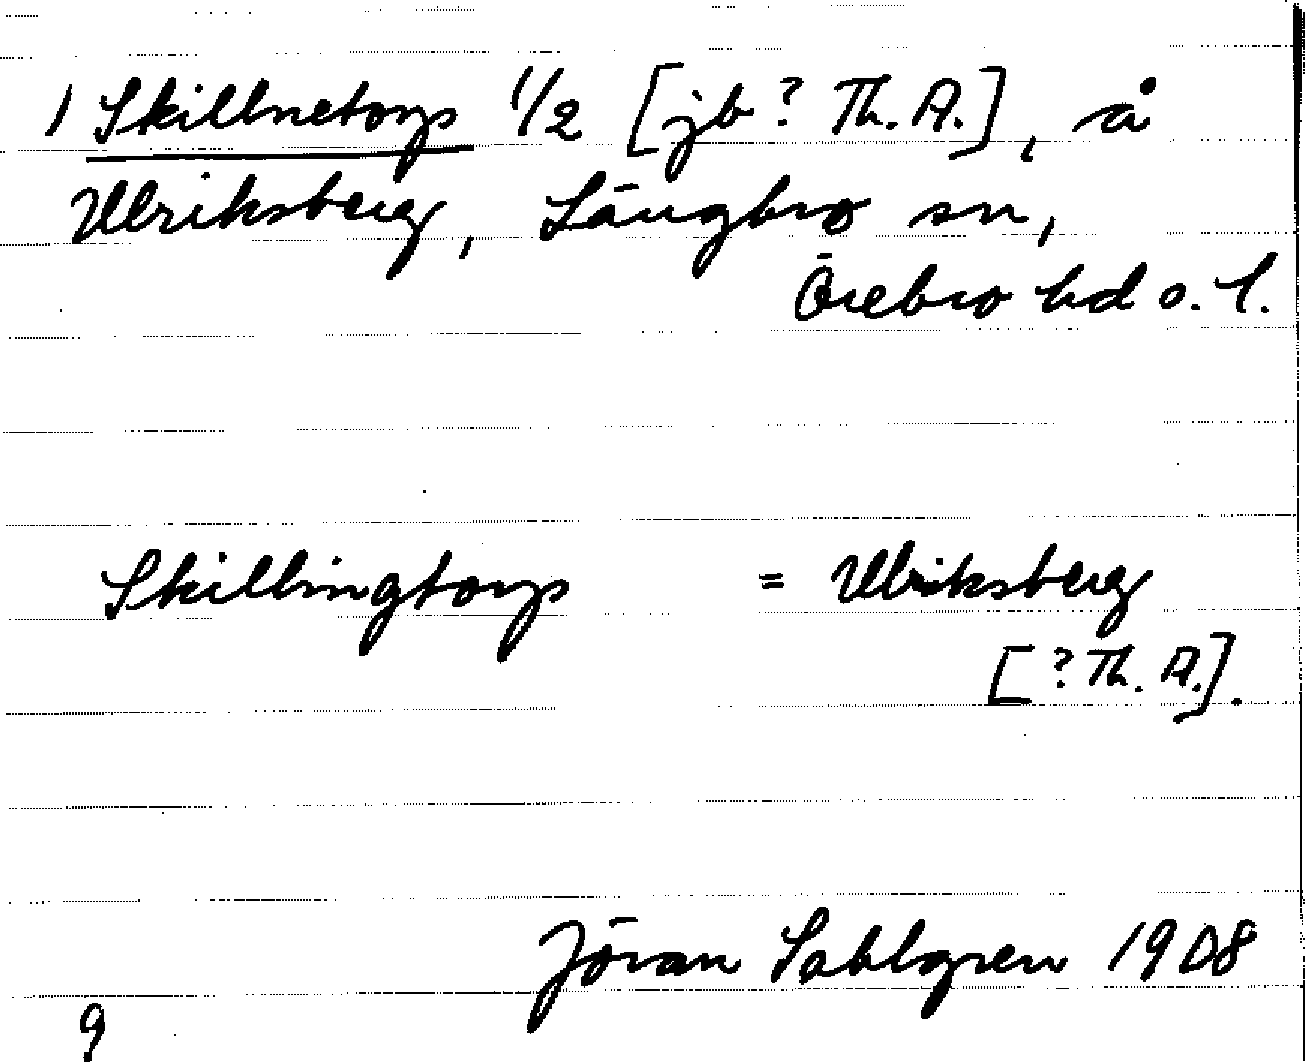 1 Skillnetorp 1/2 [jb? Th. A.], å
Ulriksberg, Längbro sn,
Örebro hd o. l.
Skillingtorp = Ulriksberg
[? Th. A.].
Jöran Sahlgren 1908
9